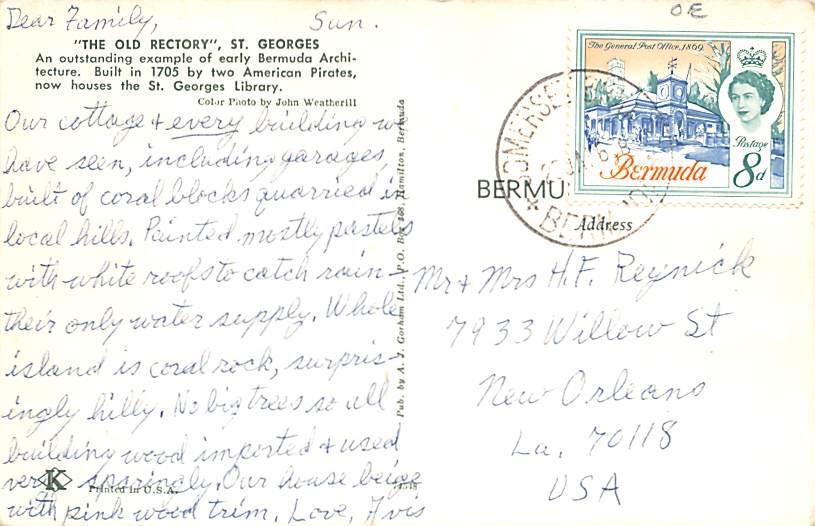 OE
Dear Family, Sun.
"THE OLD RECTORY", ST. GEORGES
An outstanding example of early Bermuda Archi-
tecture. Built in 1705 by two American Pirates,
now houses the St. Georges Library.
Color Photo by John Weatherill
Our cottage & every building we
have seen, including garages,
built of coral blocks quarried in
local hills. Painted mostly pastels
with white roofs to catch rain -
their only water supply. Whole
island is coral rock, surpris-
ingly hilly. No big trees so all
building wood imported & used
very sparingly. Our house beige
with pink wood trim. Love, Avis
K
Printed in U.S.A.
Pub. by A. J. Gorham Ltd., P.O. Box 468, Hamilton, Bermuda
The General Post Office, 1869.
Postage
Bermuda 8d
SOMERSET
BERMUDA
BERMU
Address
Mr & Mrs H.F. Reynick
7933 Willow St
New Orleans
La. 70118
USA